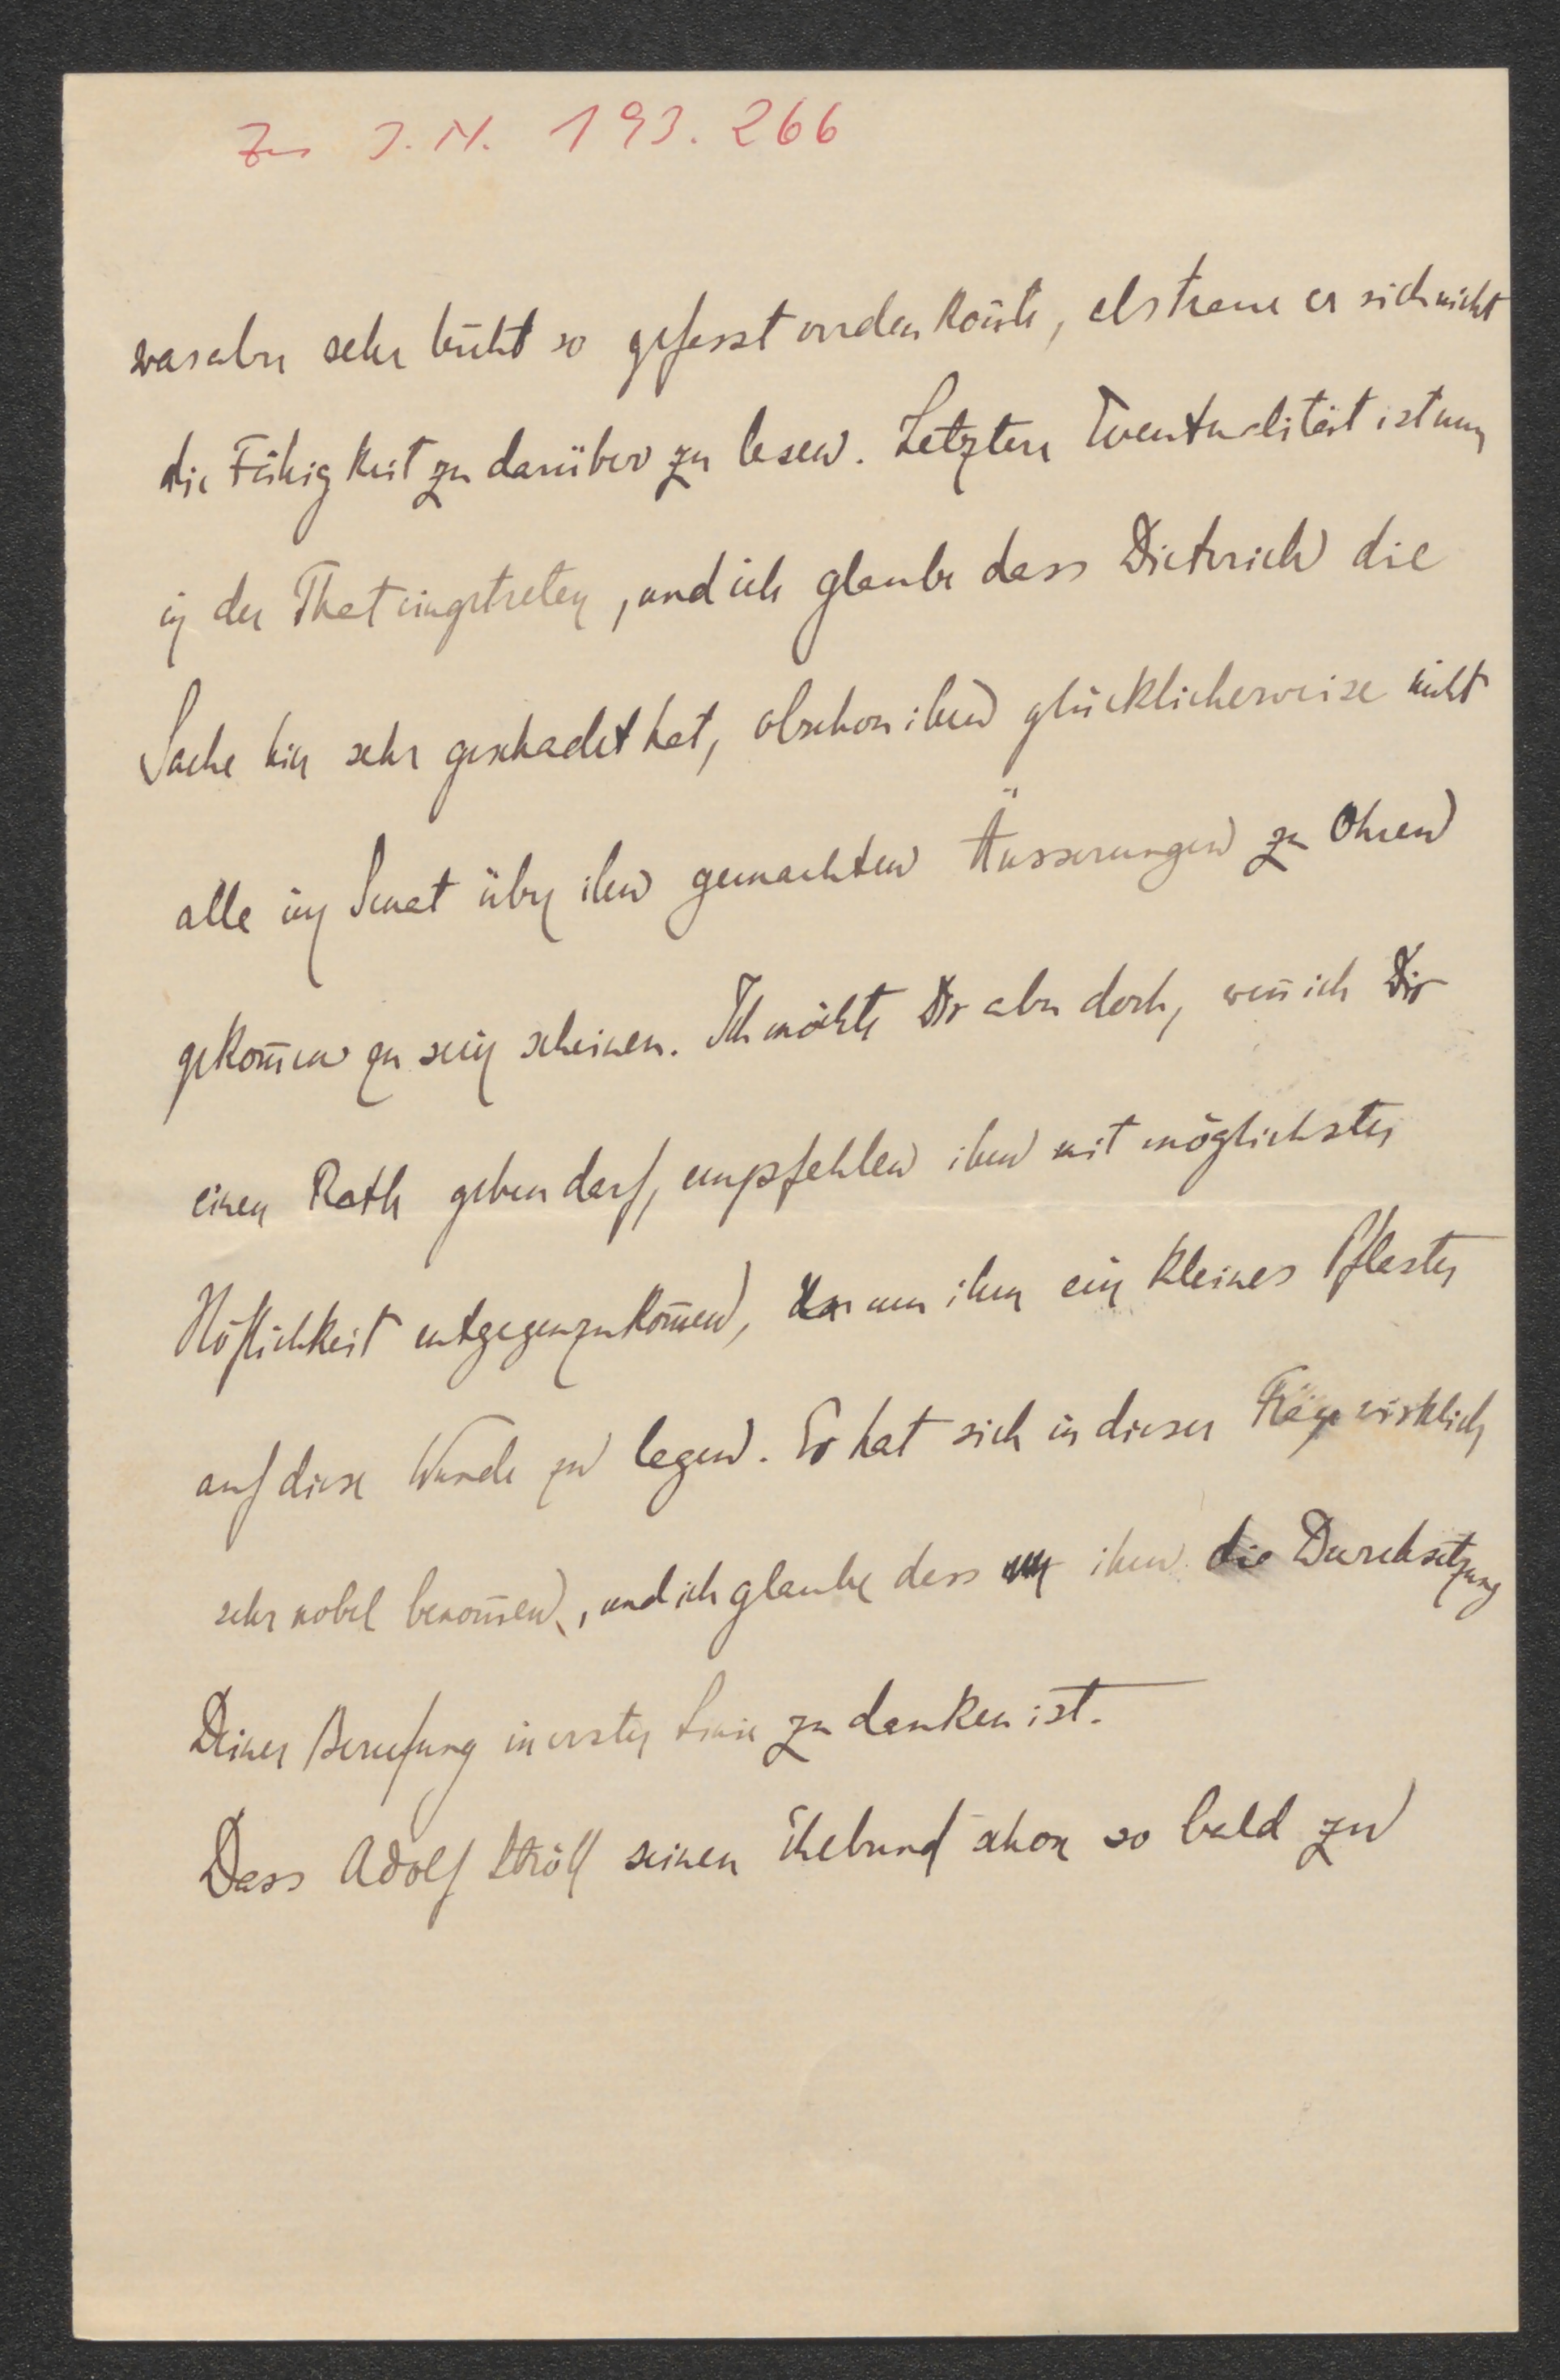 Zu I. N. 193.266
was aber sehr leicht so gefasst werden könte, als traue er sich nicht
die Fähigkeit zu darüber zu lesen. Letztere Eventualität ist nun
in der That eingetreten, und ich glaube dass Dieterich die
Sache hier sehr geschadet hat, obschon ihm glücklicherweise nicht
alle im Senat über ihn gemachten Äusserungen zu Ohren
gekom̄en zu sein scheinen. Ich möchte Dir aber doch, wen̄ ich Dir
einen Rath geben darf, empfehlen ihm mit möglichster
Höflichkeit entgegenzukom̄en, um ihm ein kleines Pflaster
auf diese Wunde zu legen. Er hat sich in dieser Frage wirklich
sehr nobel benom̄en, und ich glaube dass ihm die Durchsetzung
Deiner Berufung in erster Linie zu danken ist.
Dass Adolf Ströll seinen Ehebund schon so bald zu